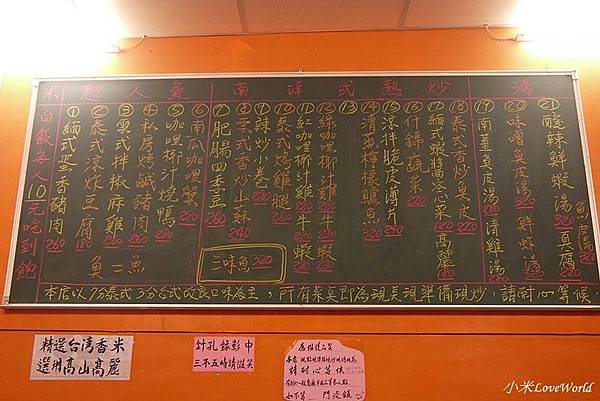 米 超 人 氣 南 洋 式 熱 炒 湯
白飯每人10元吃到飽
① 緬式蛋香豬肉 260
② 泰式涼炸豆腐 180
③ 雲式拌椒麻雞 220
④ 私房烤鹹豬肉 260
⑤ 咖哩椰汁燒鴨 280
⑥ 南瓜咖哩蟹 280
⑦ 肥腸四季豆
⑧ 雲式香炒山蘇 240
⑨ 辣炒小卷 220
⑩ 泰式烤雞腿
⑪ 紅咖哩椰汁雞牛蝦
⑫ 綠咖哩椰汁雞牛蝦
⑬
⑭ 清蒸檸檬鱸魚 320
⑮ 涼拌脆皮薄片
⑯ 什錦蔬菜 220
⑰ 緬式蝦醬空心菜 高麗 180
⑱ 泰式香炒臭皮 220
⑲ 南薑魚皮湯 清雞湯
⑳ 味噌臭皮湯 鮮蚵湯
㉑ 酸辣鮮蝦湯 320 臭腐
三味魚 320
本店以7分泰式3分台式改良口味為主，所有菜矣即為現矣現準備現炒，請耐心等候
精選台湾香米
選用高山高麗
針孔錄影中
三不五時請微笑
請耐心等候
小米LoveWorld